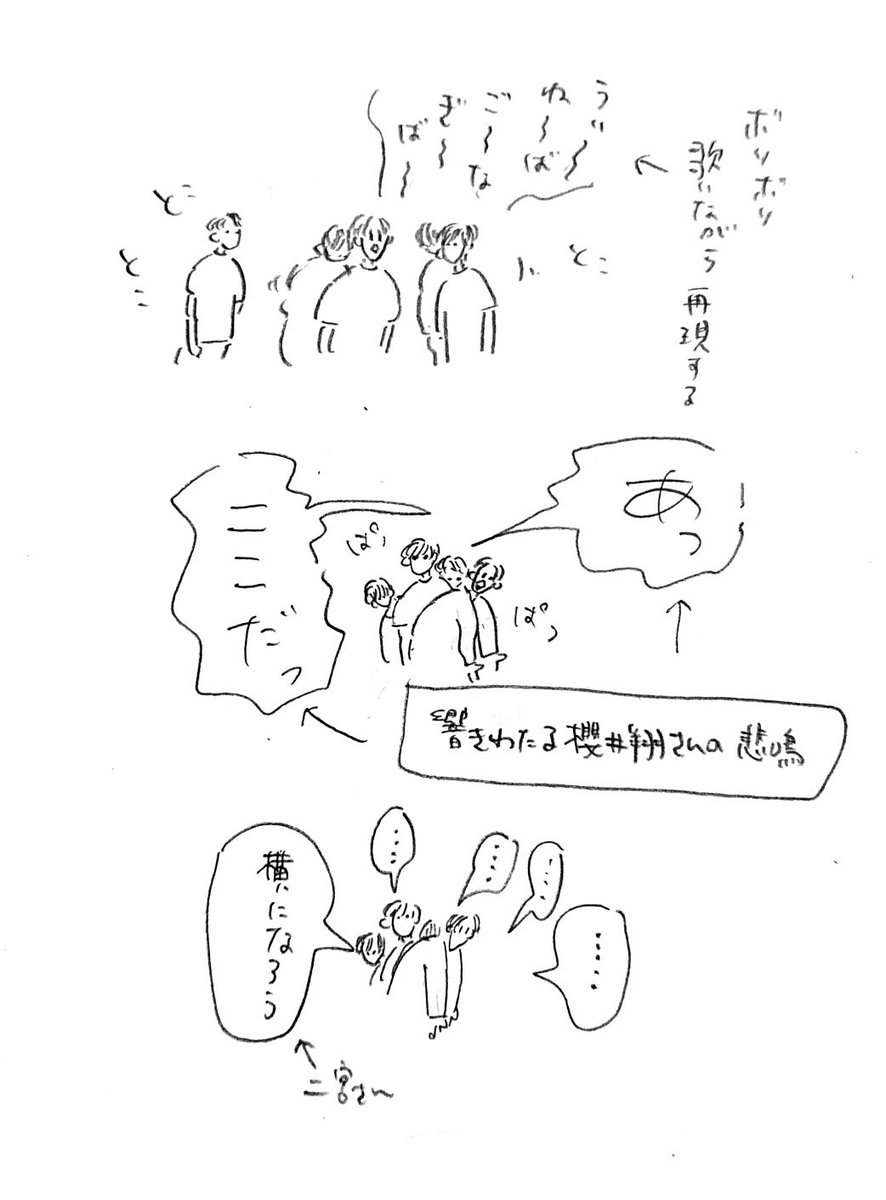 ボソボソ
歌いながら再現する
う゛〜
ね〜ば
ご〜な
ぎ〜
ば〜
とこ
とこ
とこ
あっ
ここだっ
ぱっ
ぱっ
響きわたる櫻井翔さんの悲鳴
・・・・
・・・・
・・・・
・・・・・・
横になろう
二宮さん